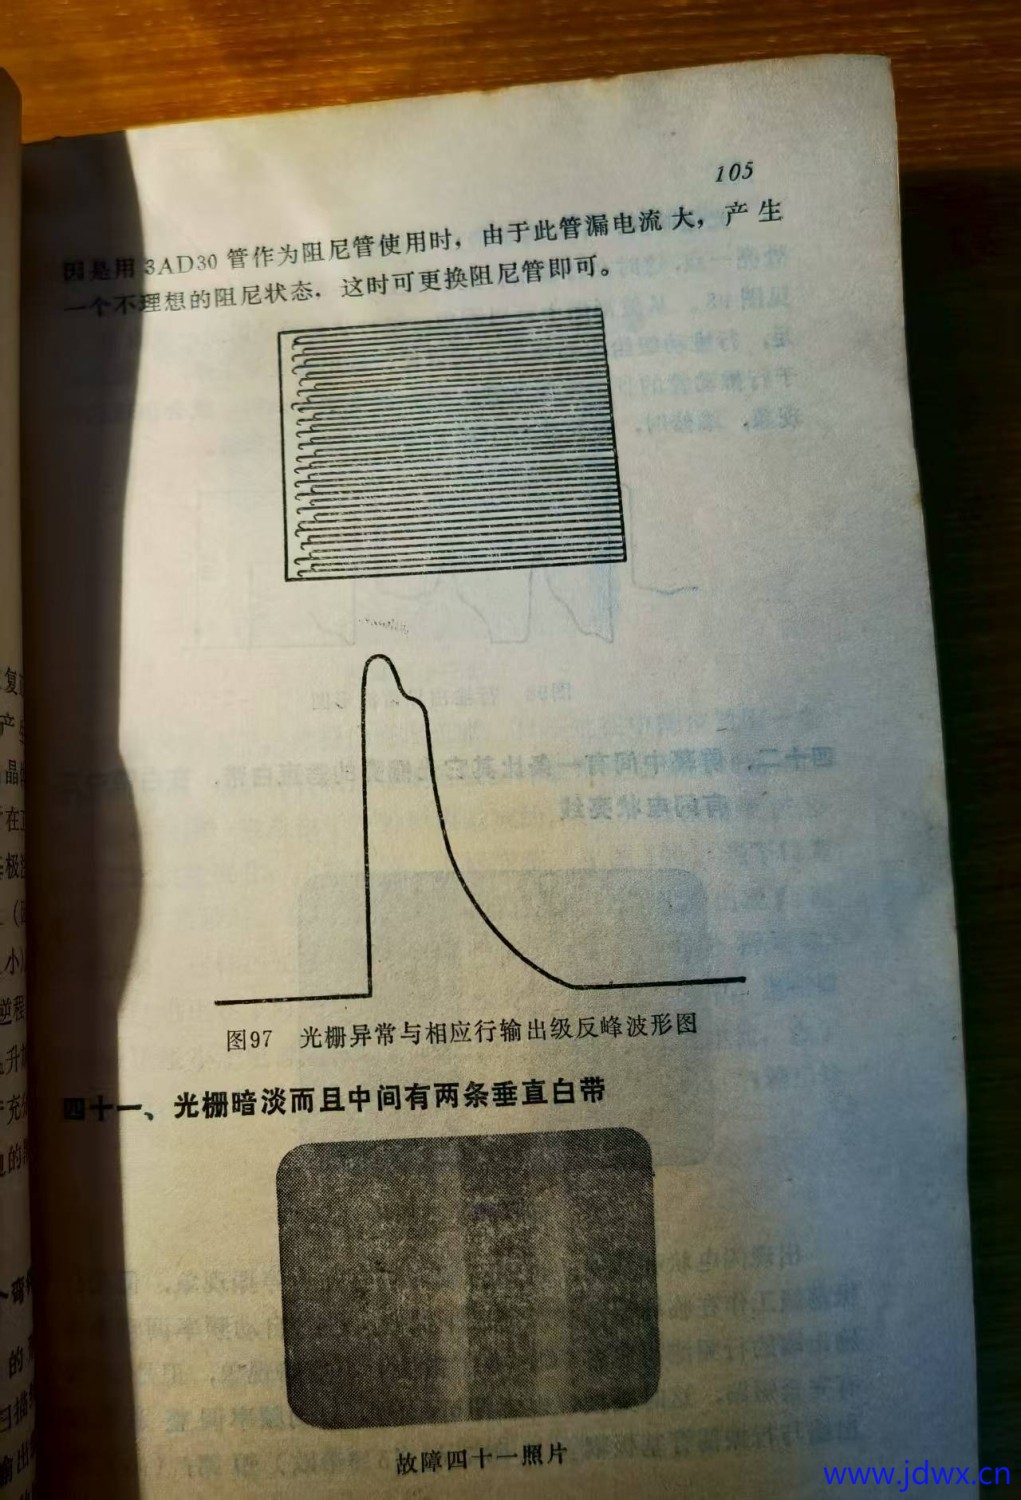 105
因是用3AD30管作为阻尼管使用时，由于此管漏电流大，产生
一个不理想的阻尼状态．这时可更换阻尼管即可。
图97 光栅异常与相应行输出级反峰波形图
四十一、光栅暗淡而且中间有两条垂直白带
故障四十一照片
www.jdwx.cn